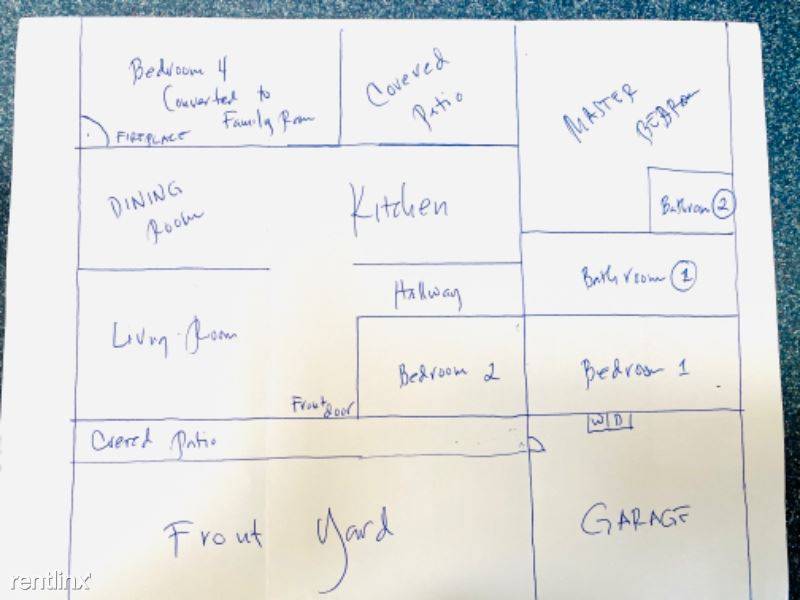 Bedroom 4
Converted to
Family Room
FIREPLACE
Covered
Patio
MASTER
BEDROOM
DINING
Room
Kitchen
Bathroom 2
Hallway
Bathroom 1
Living Room
Bedroom 2
Bedroom 1
Front
door
W D
Covered Patio
Front Yard
GARAGE
rentlinx